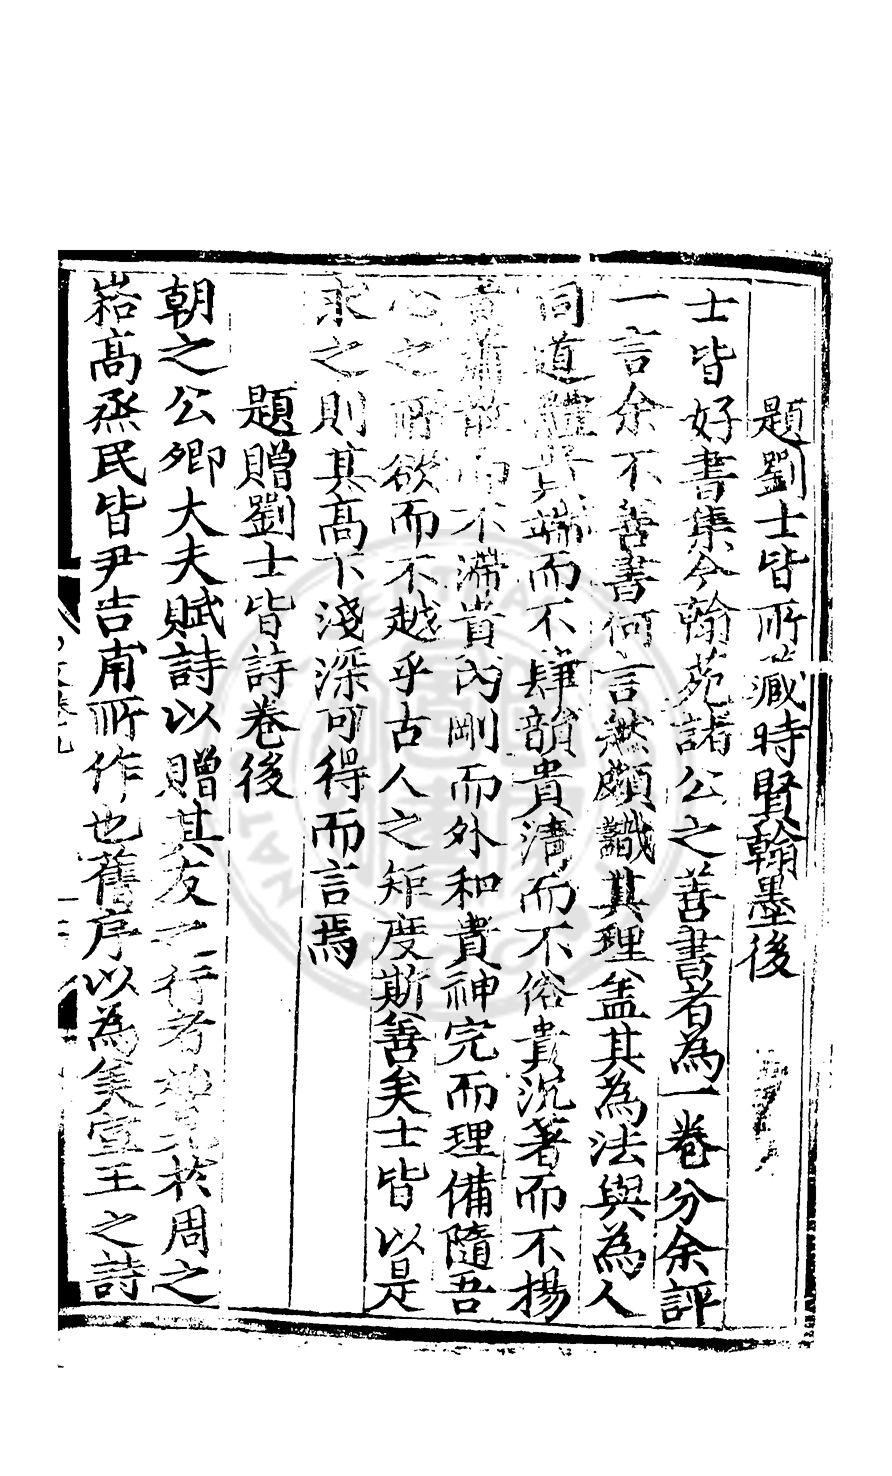 題劉士皆所藏時賢翰墨後
士皆好書集今翰苑諸公之善書者為一卷分余評
一言余不善書何言然頗識其理盖其為法與為人
同道體貴端而不肆韻貴清而不俗貴沉著而不揚
貴蕭散而不滯貴內剛而外和貴神完而理備隨吾
心之所欲而不越乎古人之矩度斯善矣士皆以是
求之則其高下淺深可得而言焉
題贈劉士皆詩卷後
朝之公卿大夫賦詩以贈其友之行者盖見於周之
崧高烝民皆尹吉甫所作也舊序以為美宣王之詩